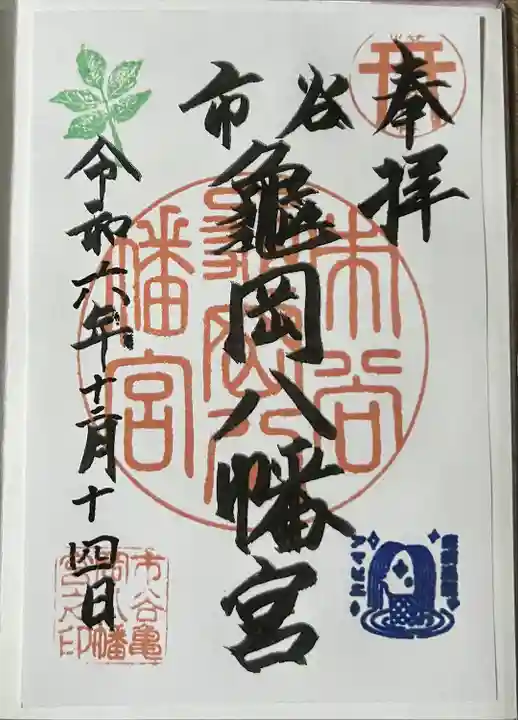 奉拝
市谷
龜岡八幡宮
令和六年十二月十四日
市谷
亀岡八
幡宮
市谷亀
岡八幡
宮之印